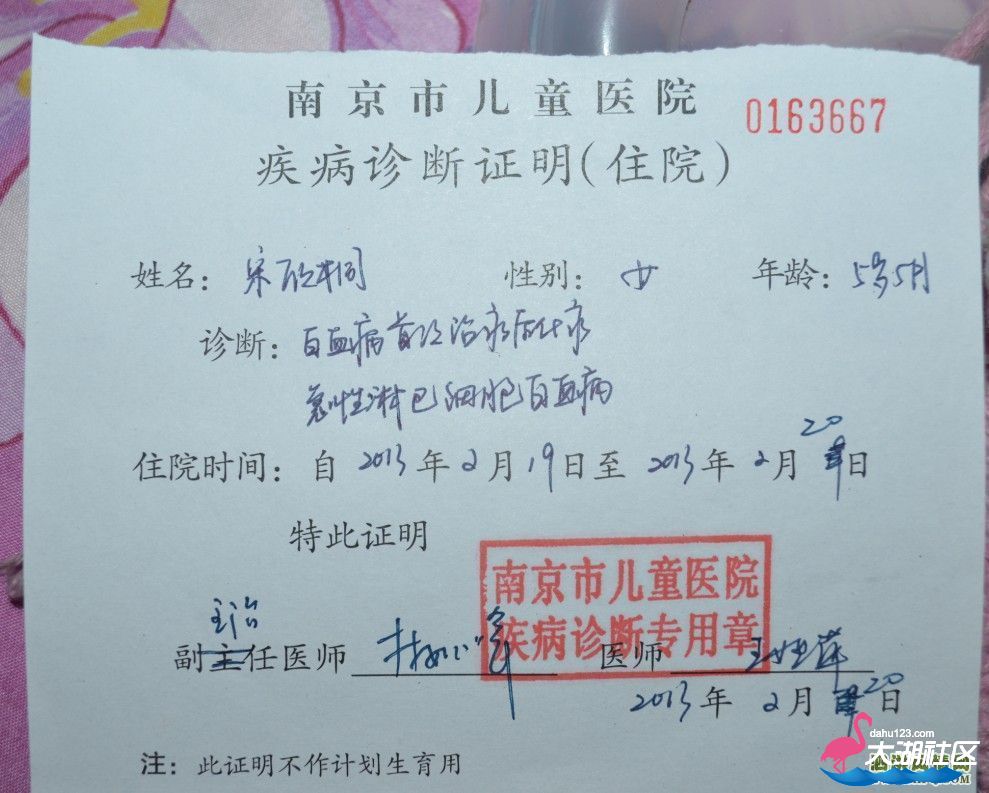 南京市儿童医院
0163667
疾病诊断证明(住院)
姓名: 宋 性别: 女 年龄: 5岁5月
诊断: 白血病 治疗后化疗
急性淋巴细胞白血病
住院时间: 自 2013 年 2 月 19 日至 2013 年 2 月 20 日
特此证明
南京市儿童医院
疾病诊断专用章
主治
副主任医师 医师 王
2013 年 2 月 20 日
注: 此证明不作计划生育用
dahu123.com
大湖社区